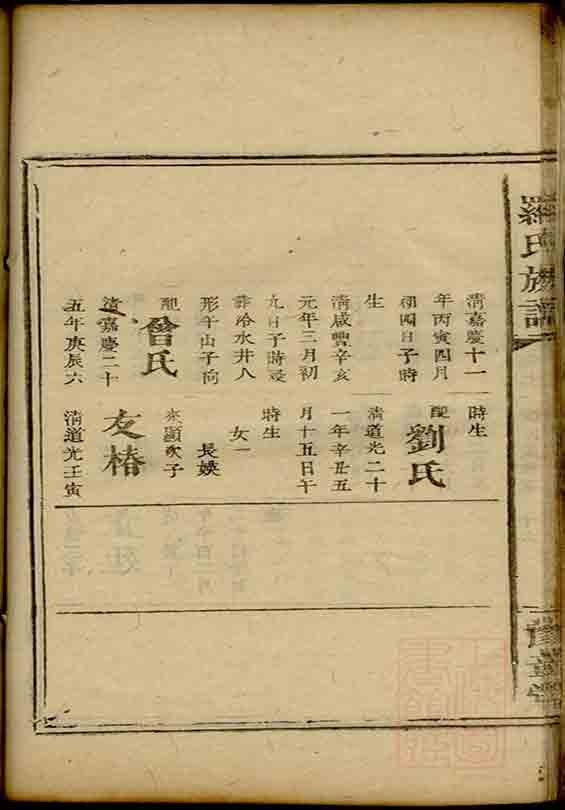 羅氏族譜
豫章堂
清嘉慶十一
年丙寅四月
初四日子時
生
清咸豐辛亥
元年三月初
九日子時歿
葬冷水井人
形午山子向
配
曾氏
清嘉慶二十
五年庚辰六
時生
配
劉氏
清道光二十
一年辛丑五
月十五日午
時生
女一
長媖
來顯次子
友椿
清道光壬寅